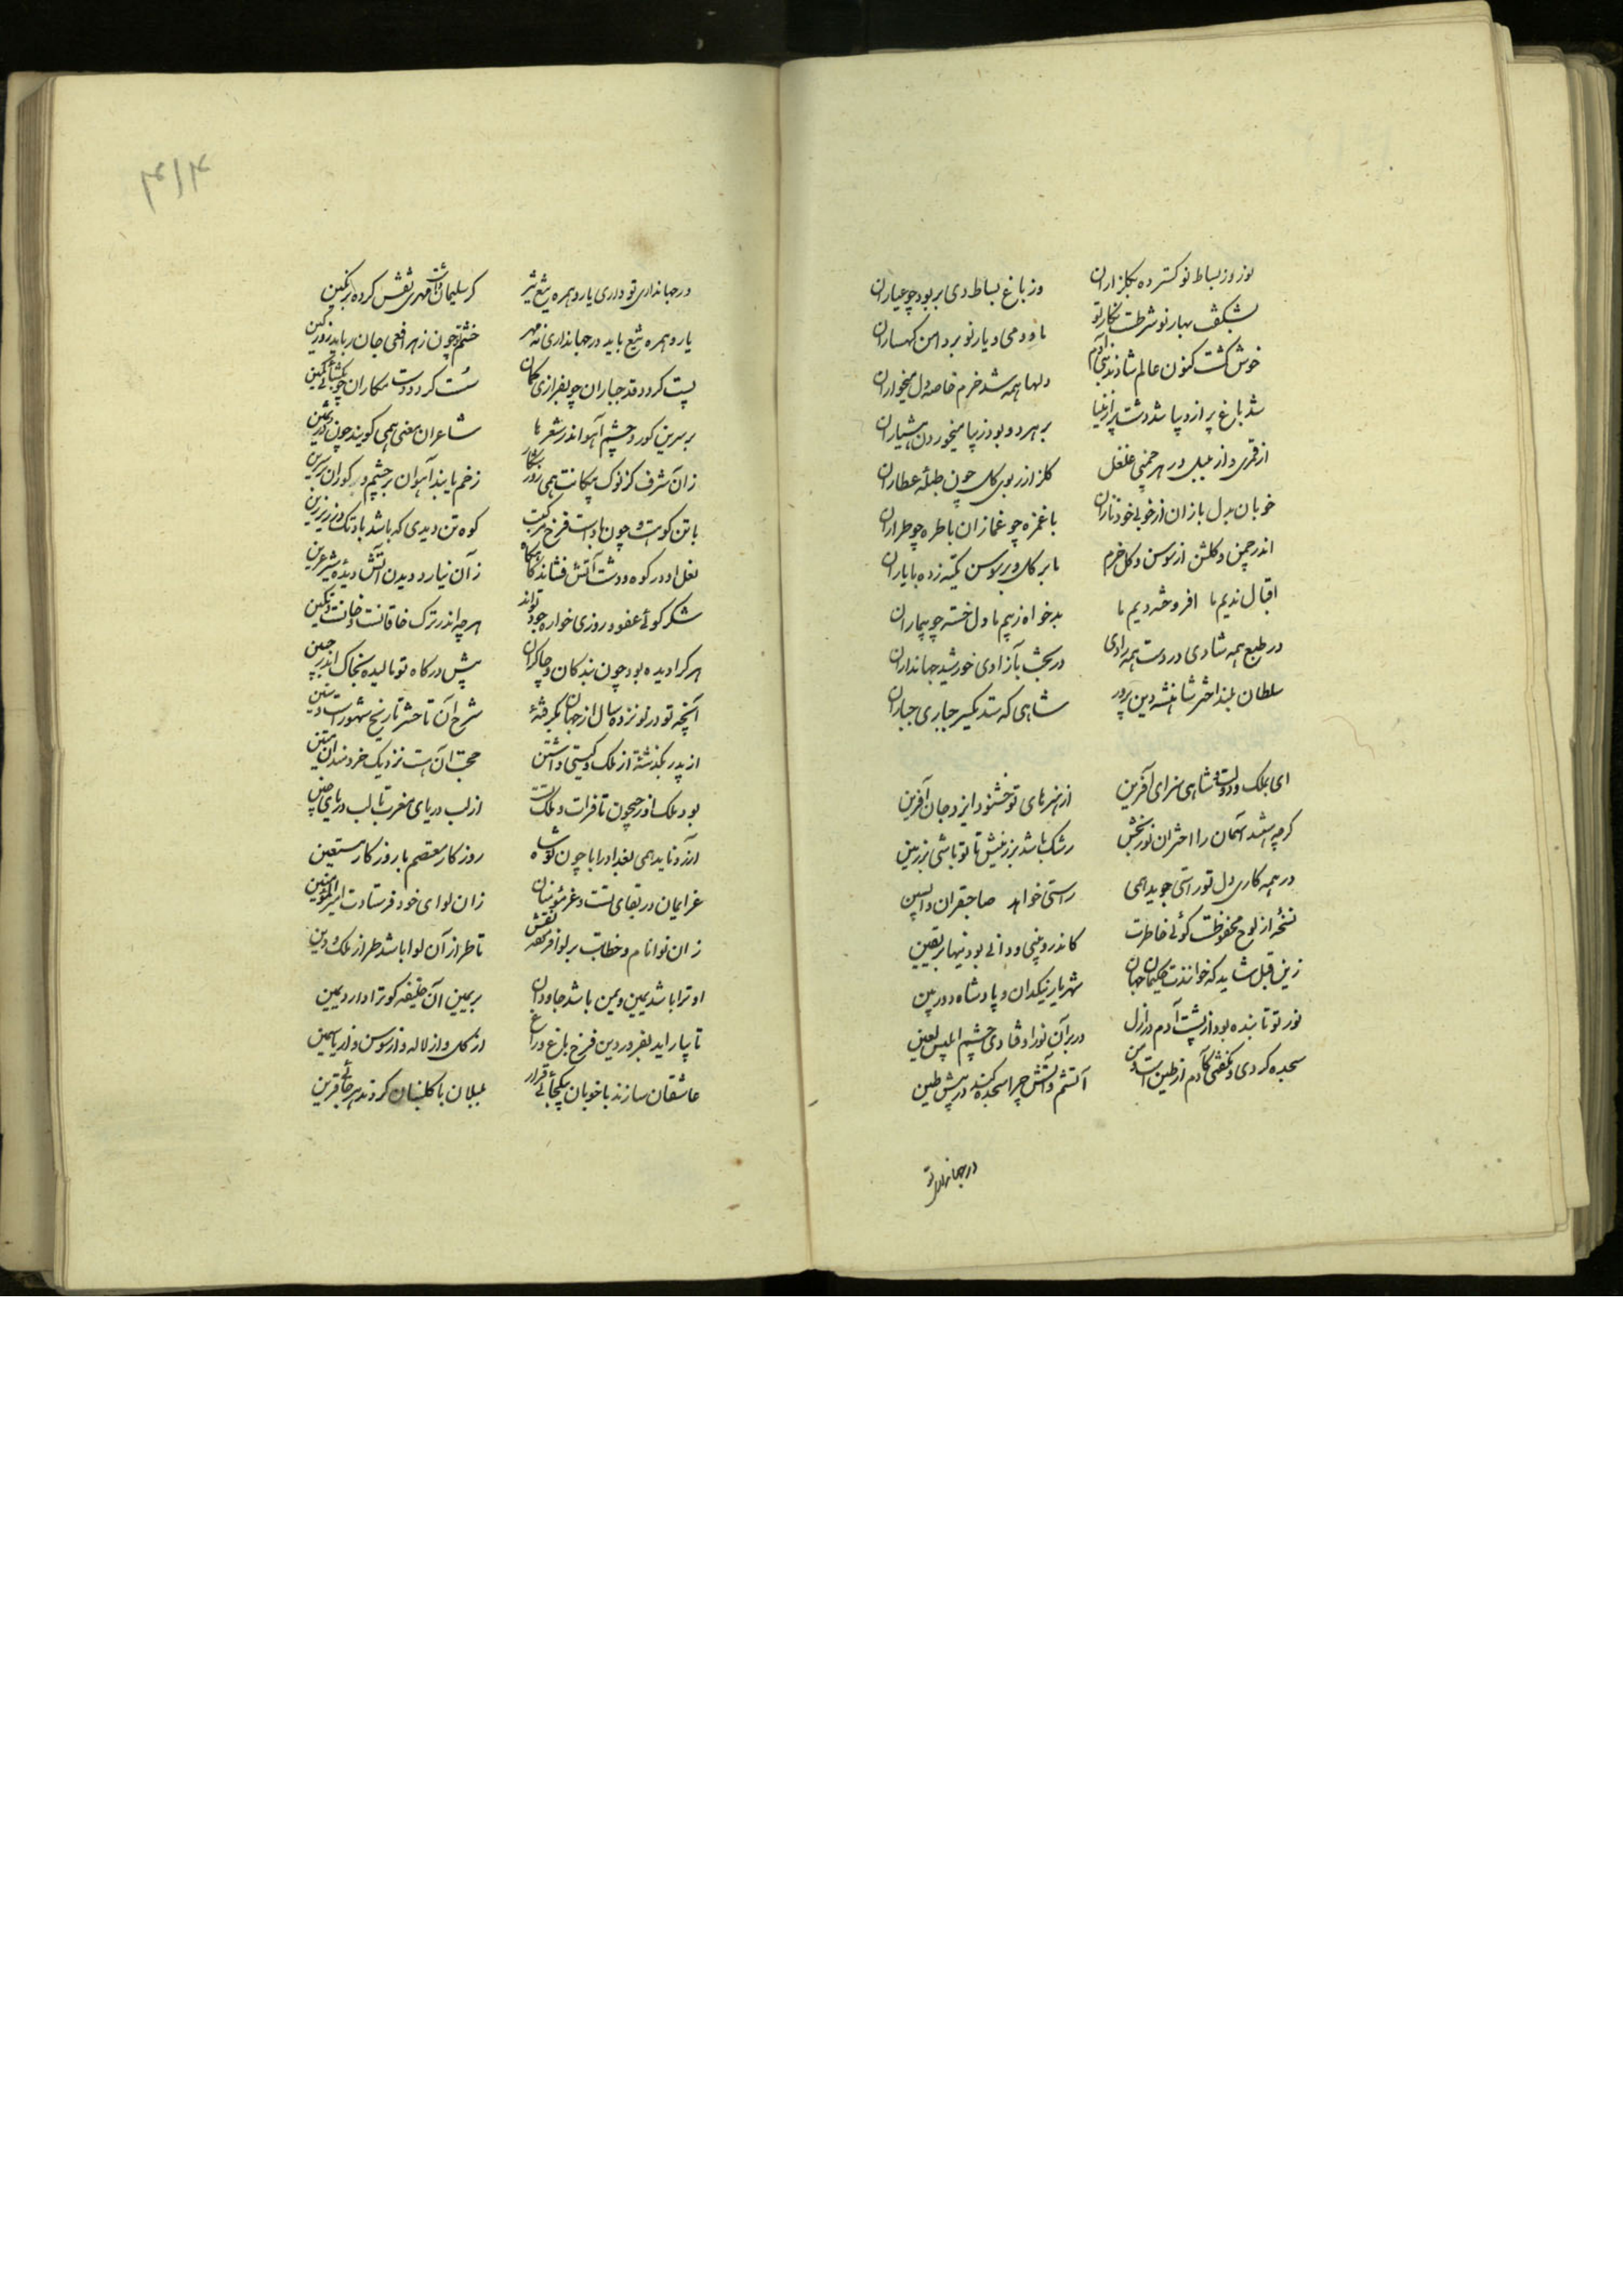 نوروز بساط نو کسترده بکلزاران
وز باغ بساط دی بربود چو عیاران
بشکفت بهار نو شرطست نکار نو
با رود می و یار نو بر دامن کهساران
خوش کشت کنون عالم شادند بنی آدم
دلها همه شد خرم خاصه دل میخواران
شد باغ پر از دیبا شد دشت پر از
بر هر دو بود زیبا میخوردن هشیاران
از قمری و از بلبل در هر چمنی غلغل
کلزار ز بوی کل چون طبلهٔ عطاران
خوبان بدل بازان از خوبی خود نازان
با غمزه چو غمازان با طره چو طراران
اندر چمن و کلشن از سوسن و کل خرم
بر کل و بر سوسن تکیه زده با یاران
اقبال ندیم ما افروخته دیم ما
بدخواه ز بیم ما دل خسته چو بیماران
در طبع همه شادی در دست همه رادی
در بخشش و آزادی خورشید جهانداران
سلطان بلند اختر شاهنشه دین پرور
شاهی که ستد یکسر جباری جباران
ای بملک و دولت و شاهی سزای آفرین
از هنرهای تو خشنود ایزد جان آفرین
کرچه باشد آسمان را اختران نوربخش
رشک باشد بر زمینش تا تو باشی بر زمین
در همه کاری دل تو راستی جوید همی
راستی خواهد صاحبقران راستین
نسخهٔ از لوح محفوظست کوئی خاطرت
کاندرو بینی و دانی بودنیها بر یقین
زین قبل شاید که خوانندت حکیمان جهان
شهریار نیکدان و پادشاه دوربین
نور تو تابنده بود از پشت آدم در ازل
در بر آن نور اوفتادی چشم ابلیس لعین
سجده کردی و نکفتی کآدم از طین است و من
آتشم و آتش چرا سجده کند در پیش طین
در جهانداری تو
در جهانداری تو داری یار و همره تیغ تیز
کر سلیمان داشت مهری نقش کرده بر نکین
یار و همره تیغ باید در جهانداری نه مهر
خشم تو چون زهر افعی جان رباید روز کین
پست کردد قد جباران چو بفرازی کمان
سست کردد دست مکاران چو بکشائی کمین
بر سرین کور و چشم آهو اندر شعرها
شاعران معنی همی کویند چون در ثمین
زان شرف کز نوک پیکانت همی روز شکار
زخم یابند آهوان بر چشم و کوران بر سرین
با تن کوهست و چون بادست فرخ مرکبت
کوه تن دیدی که باشد باد تک در زیر زین
نعل او در کوه و دشت آتش فشاند کاه کاه
زان نیارد دیدن آتش دیدهٔ شیر عرین
شکر کوی عفو و روزی خوار جود تواند
هرچه اندر ترک خاقانست و خانست و تکین
هر کرا دیده بود چون بندکان و چاکران
پیش درکاه تو مالیده بخاک اندر جبین
آنچه تو در نوزده سال از جهان بکرفتهٔ
شرح آن تا حشر تاریخ شهورست و سنین
از پدر بکذشته از ملک و کیتی داشتن
حجت آن هست نزدیک خردمندان متین
بود ملک او ز جیحون تا فرات و ملک تست
از لب دریای مغرب تا لب دریای چین
آرزو ناید همی بغداد را با چون تو شاه
روزکار معتصم با روزکار مستعین
عز ایمان در بقای تست و عز مؤمنان
زان لوای خود فرستادت امیرالمؤمنین
زان نو نام و خطابت بر لوا نقش
تا طراز آن لوا باشد طراز ملک و دین
او ترا باشد یمین و یمن باشد جاودان
بر یمین آن خلیفه کو ترا دارد یمین
تا بیاراید بفروردین فرخ باغ و راغ
از کل و از لاله و از سوسن و از یاسمین
عاشقان سازند با خوبان بیکجائی قرار
بلبلان با کلبنان کردند هر جائی قرین